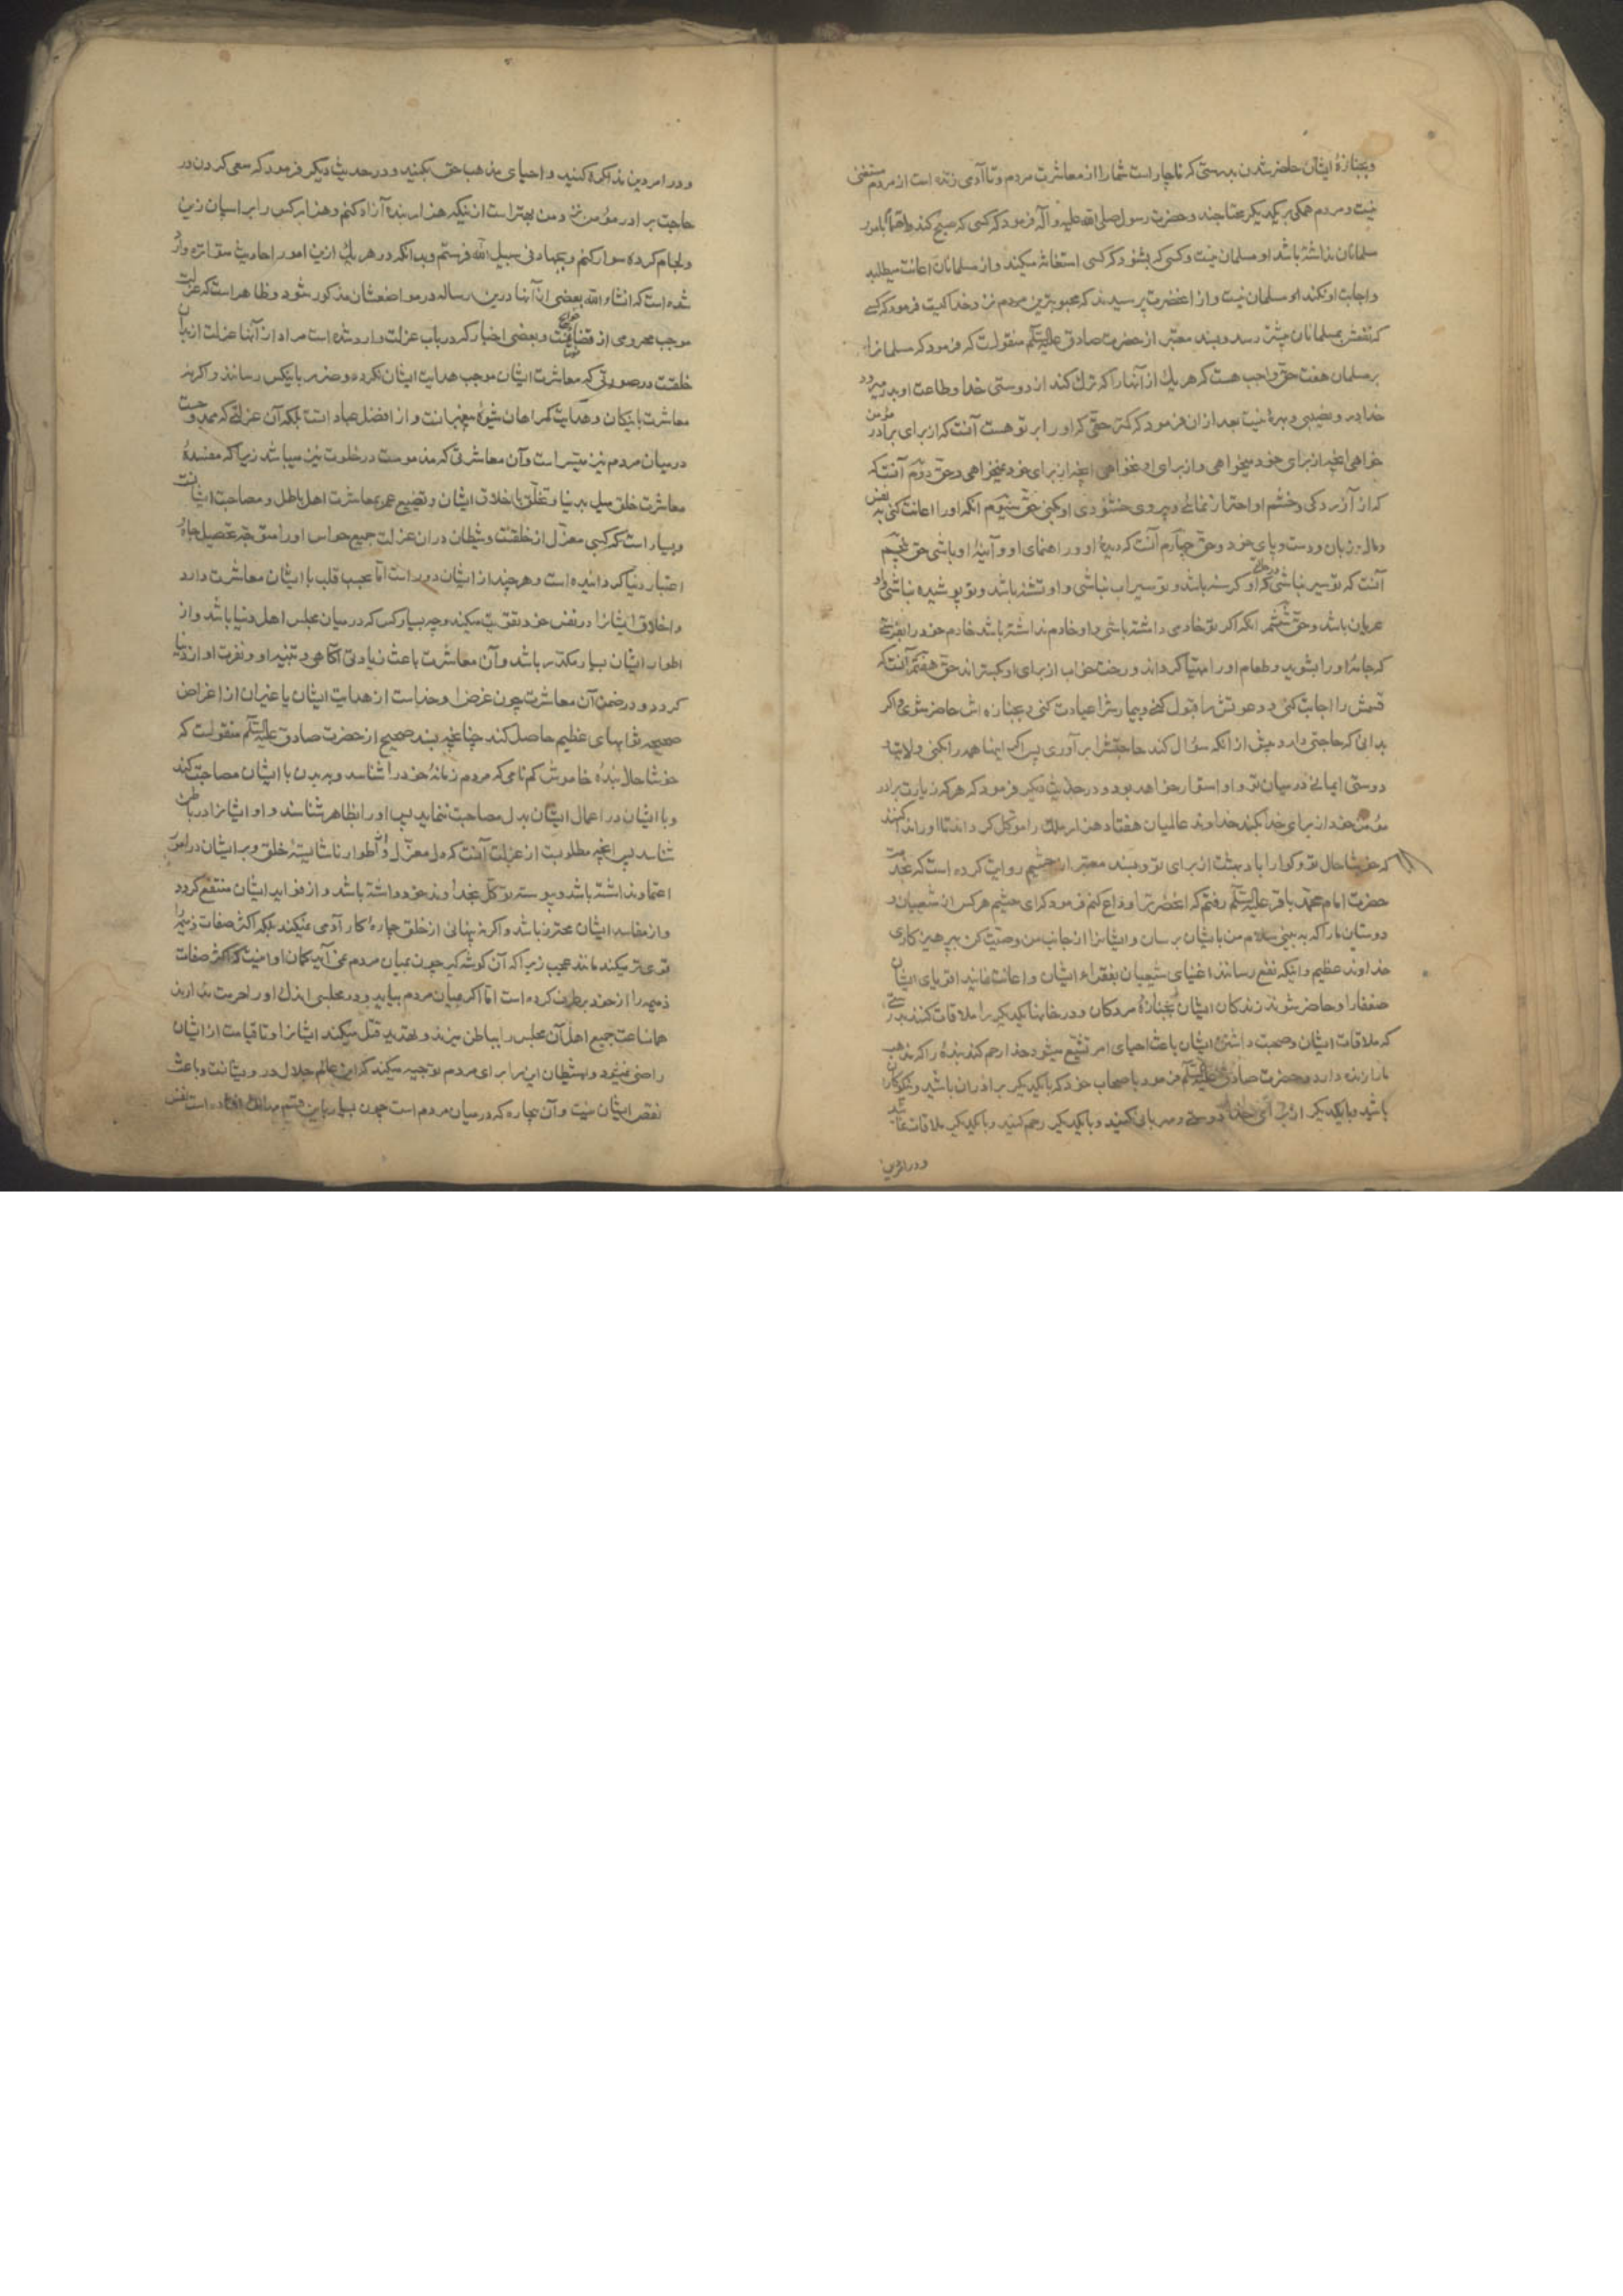 وبجنازهٔ ایشان حاضر شدن بدرستی که ناچار است شما را از معاشرت مردم وتا آدمی زنده است از مردم مستغنی
نیست ومردم همکی بیکدیکر محتاجند وحضرت رسول صلی الله علیه وآله فرمود که کسی که صبح کند واهتمام بامور
مسلمانان نداشته باشد او مسلمان نیست وکسی که بشنود که کسی استغاثه میکند واز مسلمانان اعانت میطلبد
واجابت او نکند او مسلمان نیست واز انحضرت پرسیدند که محبوبترین مردم نزد خدا کیست فرمود که کسی
که نفعش بمسلمانان بیشتر رسد وبسند معتبر از حضرت صادق علیه السلم منقولست که فرمود که مسلمانرا
بر مسلمان هفت حق واجب هست که هر یك از آنها را که ترك کند از دوستی خدا وطاعت او بدر میرود
خدا در و نصیبی وبهرهٔ نیست بعد از ان فرمود که کمتر حقی که او را بر تو هست آنست که از برای برادر مؤمن
خواهی انچه از برای خود میخواهی واز برای او نخواهی انچه از برای خود نمیخواهی وحق دویم آنست که
که از آزردکی وخشم او احتراز نمائی وپیروی خشنودی او کنی حق سیوم انکه او را اعانت کنی به نفس
ومال وزبان ودست وپای خود وحق چهارم آنست که دیدهٔ او وراهنمای او وآیینهٔ او باشی حق پنجم
آنست که تو سیر نباشی که او کرسنه باشد وتو سیراب نباشی واو تشنه باشد وتو پوشیده نباشی واو
عریان باشد وحق ششم انکه اکر تو خادمی داشته باشی واو خادم نداشته باشد خادم خود را بفرستی
که جامهٔ او را بشوید وطعام او را مهیا کرداند ورخت خواب از برای او بکستراند حق هفتم آنست که
قسمش را اجابت کنی ودعوتش را قبول کنی وبیمارش را عیادت کنی وبجنازه اش حاضر شوی واکر
بدانی که حاجتی دارد پیش از انکه سؤال کند حاجتش را برآوری پس اکر اینها همه را بکنی ولایت
دوستی ایمانی در میان تو واو استوار خواهد بود ودر حدیث دیکر فرمود که هر که زیارت برادر
مؤمن خود از برای خدا بکند خداوند عالمیان هفتاد هزار ملك را موکل کرداند تا او را ندا کنند
که خوشا حال تو وکوارا باد بهشت از برای تو وبسند معتبر از خثیم روایت کرده است که بخدمت
حضرت امام محمد باقر علیه السلم رفتم که انحضرترا وداع کنم فرمود که ای خثیم هر کس از شیعیان و
دوستان ما را که به بینی سلام من بایشان برسان وایشانرا از جانب من وصیت کن بپرهیزکاری
خداوند عظیم واینکه نفع رسانند اغنیای شیعیان بفقراء ایشان واعانت نمایند اقویای ایشان
ضعفا را وحاضر شوند زندکان ایشان بجنازهٔ مردکان ودر خانها یکدیکر را ملاقات کنند بدرستی
که ملاقات ایشان وصحبت داشتن ایشان باعث احیای امر تشیع میشود خدا رحم کند بندهٔ را که مذهب
ما را زنده دارد وحضرت صادق علیه السلم فرمود باصحاب خود که با یکدیکر برادران باشید ونیکوکاران
باشید وبا یکدیکر از برای خدا دوستی ومهربانی کنید وبا یکدیکر رحم کنید وبا یکدیکر ملاقات نمائید
ودر امر دین
ودر امر دین مذاکره کنید واحیای مذهب حق بکنید ودر حدیث دیکر فرمود که سعی کردن در
حاجت برادر مؤمن نزد من بهتر است از اینکه هزار بنده آزاد کنم وهزار کس را بر اسبان زین
ولجام کرده سوار کنم وبجهاد فی سبیل الله فرستم وبدانکه در هر یك ازین امور احادیث متواتره وارد
شده است که انشاء الله بعضی از آنها درین رساله در مواضعشان مذکور شود وظاهر است که عزلت
موجب محرومی از وبعضی اخبار که در باب عزلت وارد شده است مراد از آنها عزلت از بدان
خلقست در صورتی که معاشرت ایشان موجب هدایت ایشان نکردد وضرر باینکس رسانند واکر نه
معاشرت با نیکان وهدایت کمراهان شیوهٔ پیغمبرانست واز افضل عباداتست بلکه آن عزلتی که ممدوحست
در میان مردم نیز میسر است وآن معاشرتی که مذمومست در خلوت نیز میباشد زیرا که مفسدهٔ
معاشرت خلق میل بدنیا وتخلق باخلاق ایشان وتضییع عمر بمعاشرت اهل باطل ومصاحبت ایشانست
وبسیار است که کسی معتزل از خلقست وشیطان در ان عزلت جمیع حواس او را متوجه تحصیل جاه و
اعتبار دنیا کردانیده است وهر چند از ایشان دور است اما بحسب قلب با ایشان معاشرت دارد
واخلاق ایشانرا در نفس خود تقویت میکند وچه بسیار کس که در میان مجلس اهل دنیا باشد واز
اطوار ایشان بسیار مکدر باشد وآن معاشرت باعث زیادتی آکاهی وتنبه او ونفرت او از دنیا
کردد ودر ضمن آن معاشرت چون غرض او خداست از هدایت ایشان یا غیر ان از اغراض
صحیحه ثوابهای عظیم حاصل کند چنانچه بسند صحیح از حضرت صادق علیه السلم منقولست که
خوشا حال بندهٔ خاموش کم نامی که مردم زمانهٔ خود را شناسد وببدن با ایشان مصاحبت کند
وبا ایشان در اعمال ایشان بدل مصاحبت ننماید پس او را بظاهر شناسند واو ایشانرا در باطن
شناسد پس انچه مطلوبست از عزلت آنست که دل معتزل از اطوار ناشایستهٔ خلق وبر ایشان در امور
اعتماد نداشته باشد وپیوسته توکل بخداوند خود داشته باشد واز فواید ایشان منتفع کردد
واز مفاسد ایشان محترز باشد واکر نه پنهانی از خلق چارهٔ کار آدمی نمیکند بلکه اکثر صفات ذمیمه را
قوی تر میکند مانند عجب زیرا که آن کوشه کیر چون بمیان مردم نمی آید کمان او اینست که اکثر صفات
ذمیمه را از خود برطرف کرده است اما اکر بمیان مردم بیاید ودر مجلسی اندك او را حرمت ندارند
همان ساعت جمیع اهل آن مجلس را بباطن میزند وبتهدید قتل میکند ایشانرا وتا قیامت از ایشان
راضی نمیشود وشیطان این را برای مردم توجیه میکند که این عالم جلال درویشانست وباعث
نقص ایشان نیست وآن بیچاره که در میان مردم است چون بسیار باین قسم است نفس